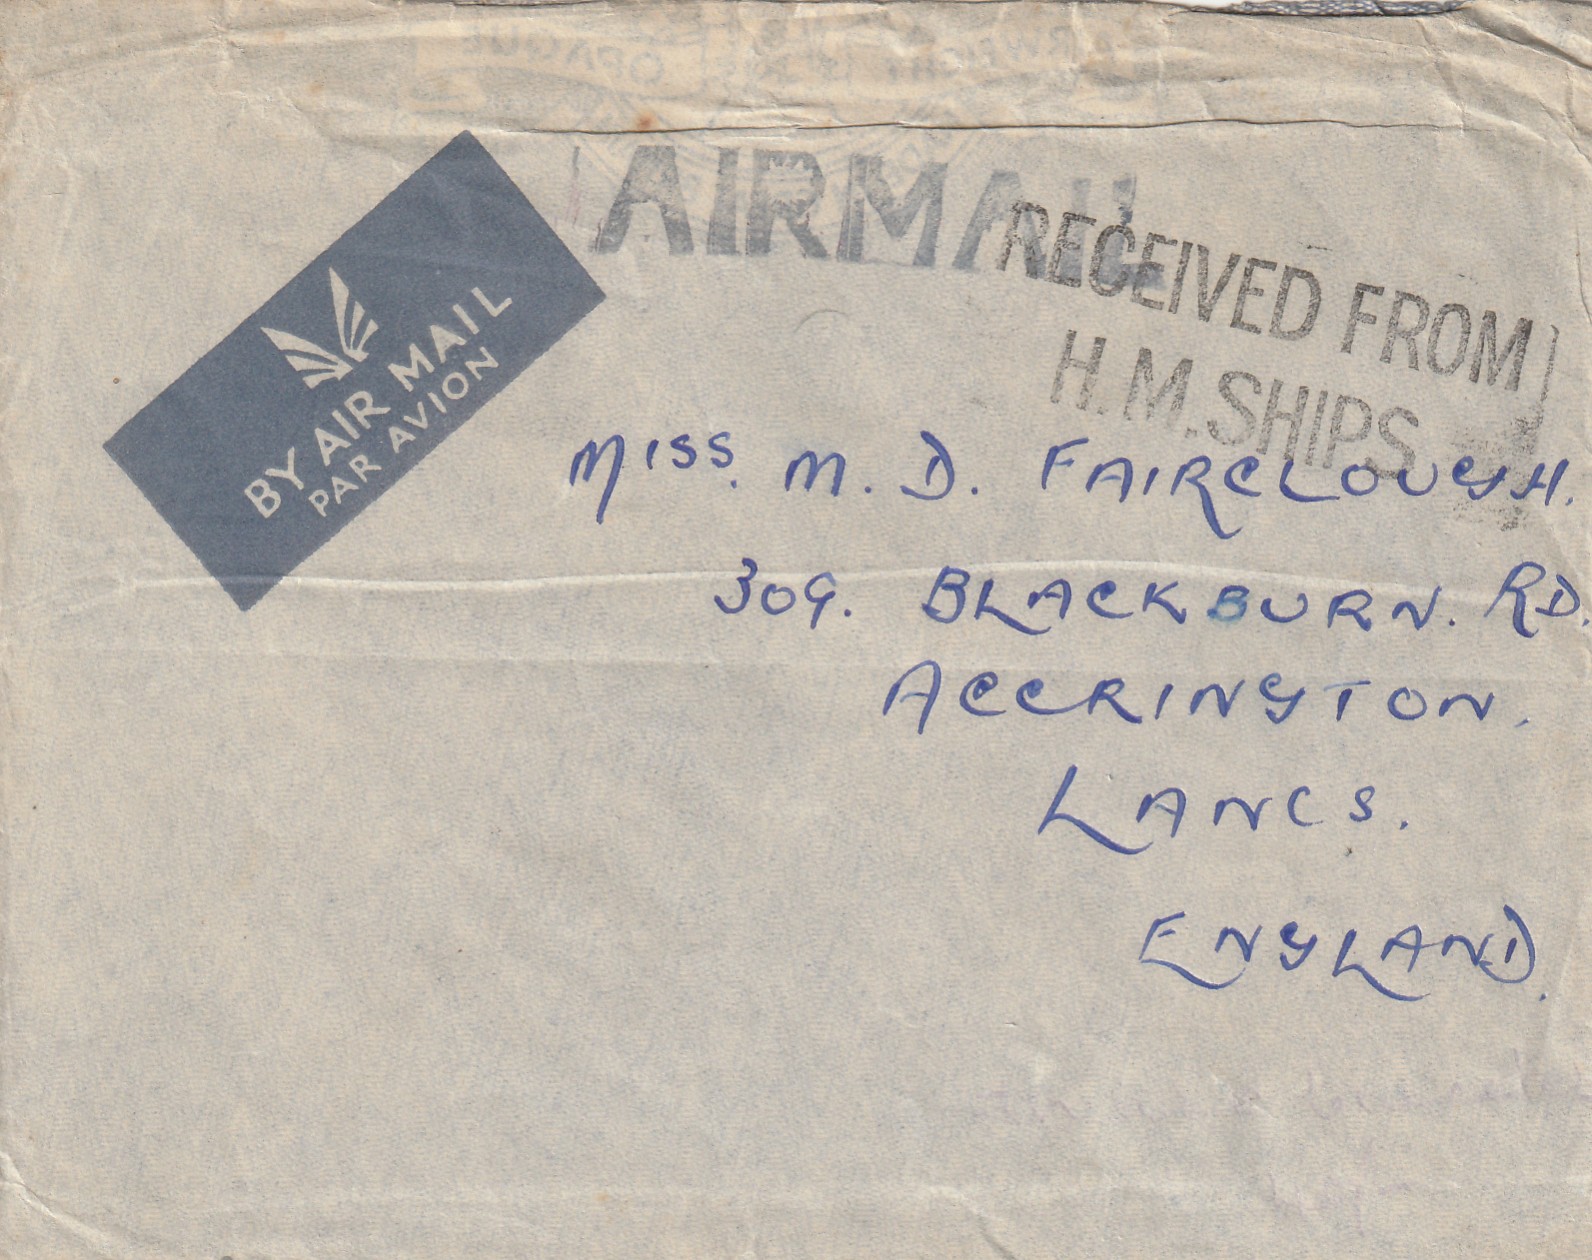 AIRMAIL
RECEIVED FROM
H.M.SHIPS
BY AIR MAIL
PAR AVION
MISS. M. D. FAIRCLOUGH.
309. BLACKBURN. RD.
ACCRINGTON.
LANCS.
ENGLAND.
OPAQUE